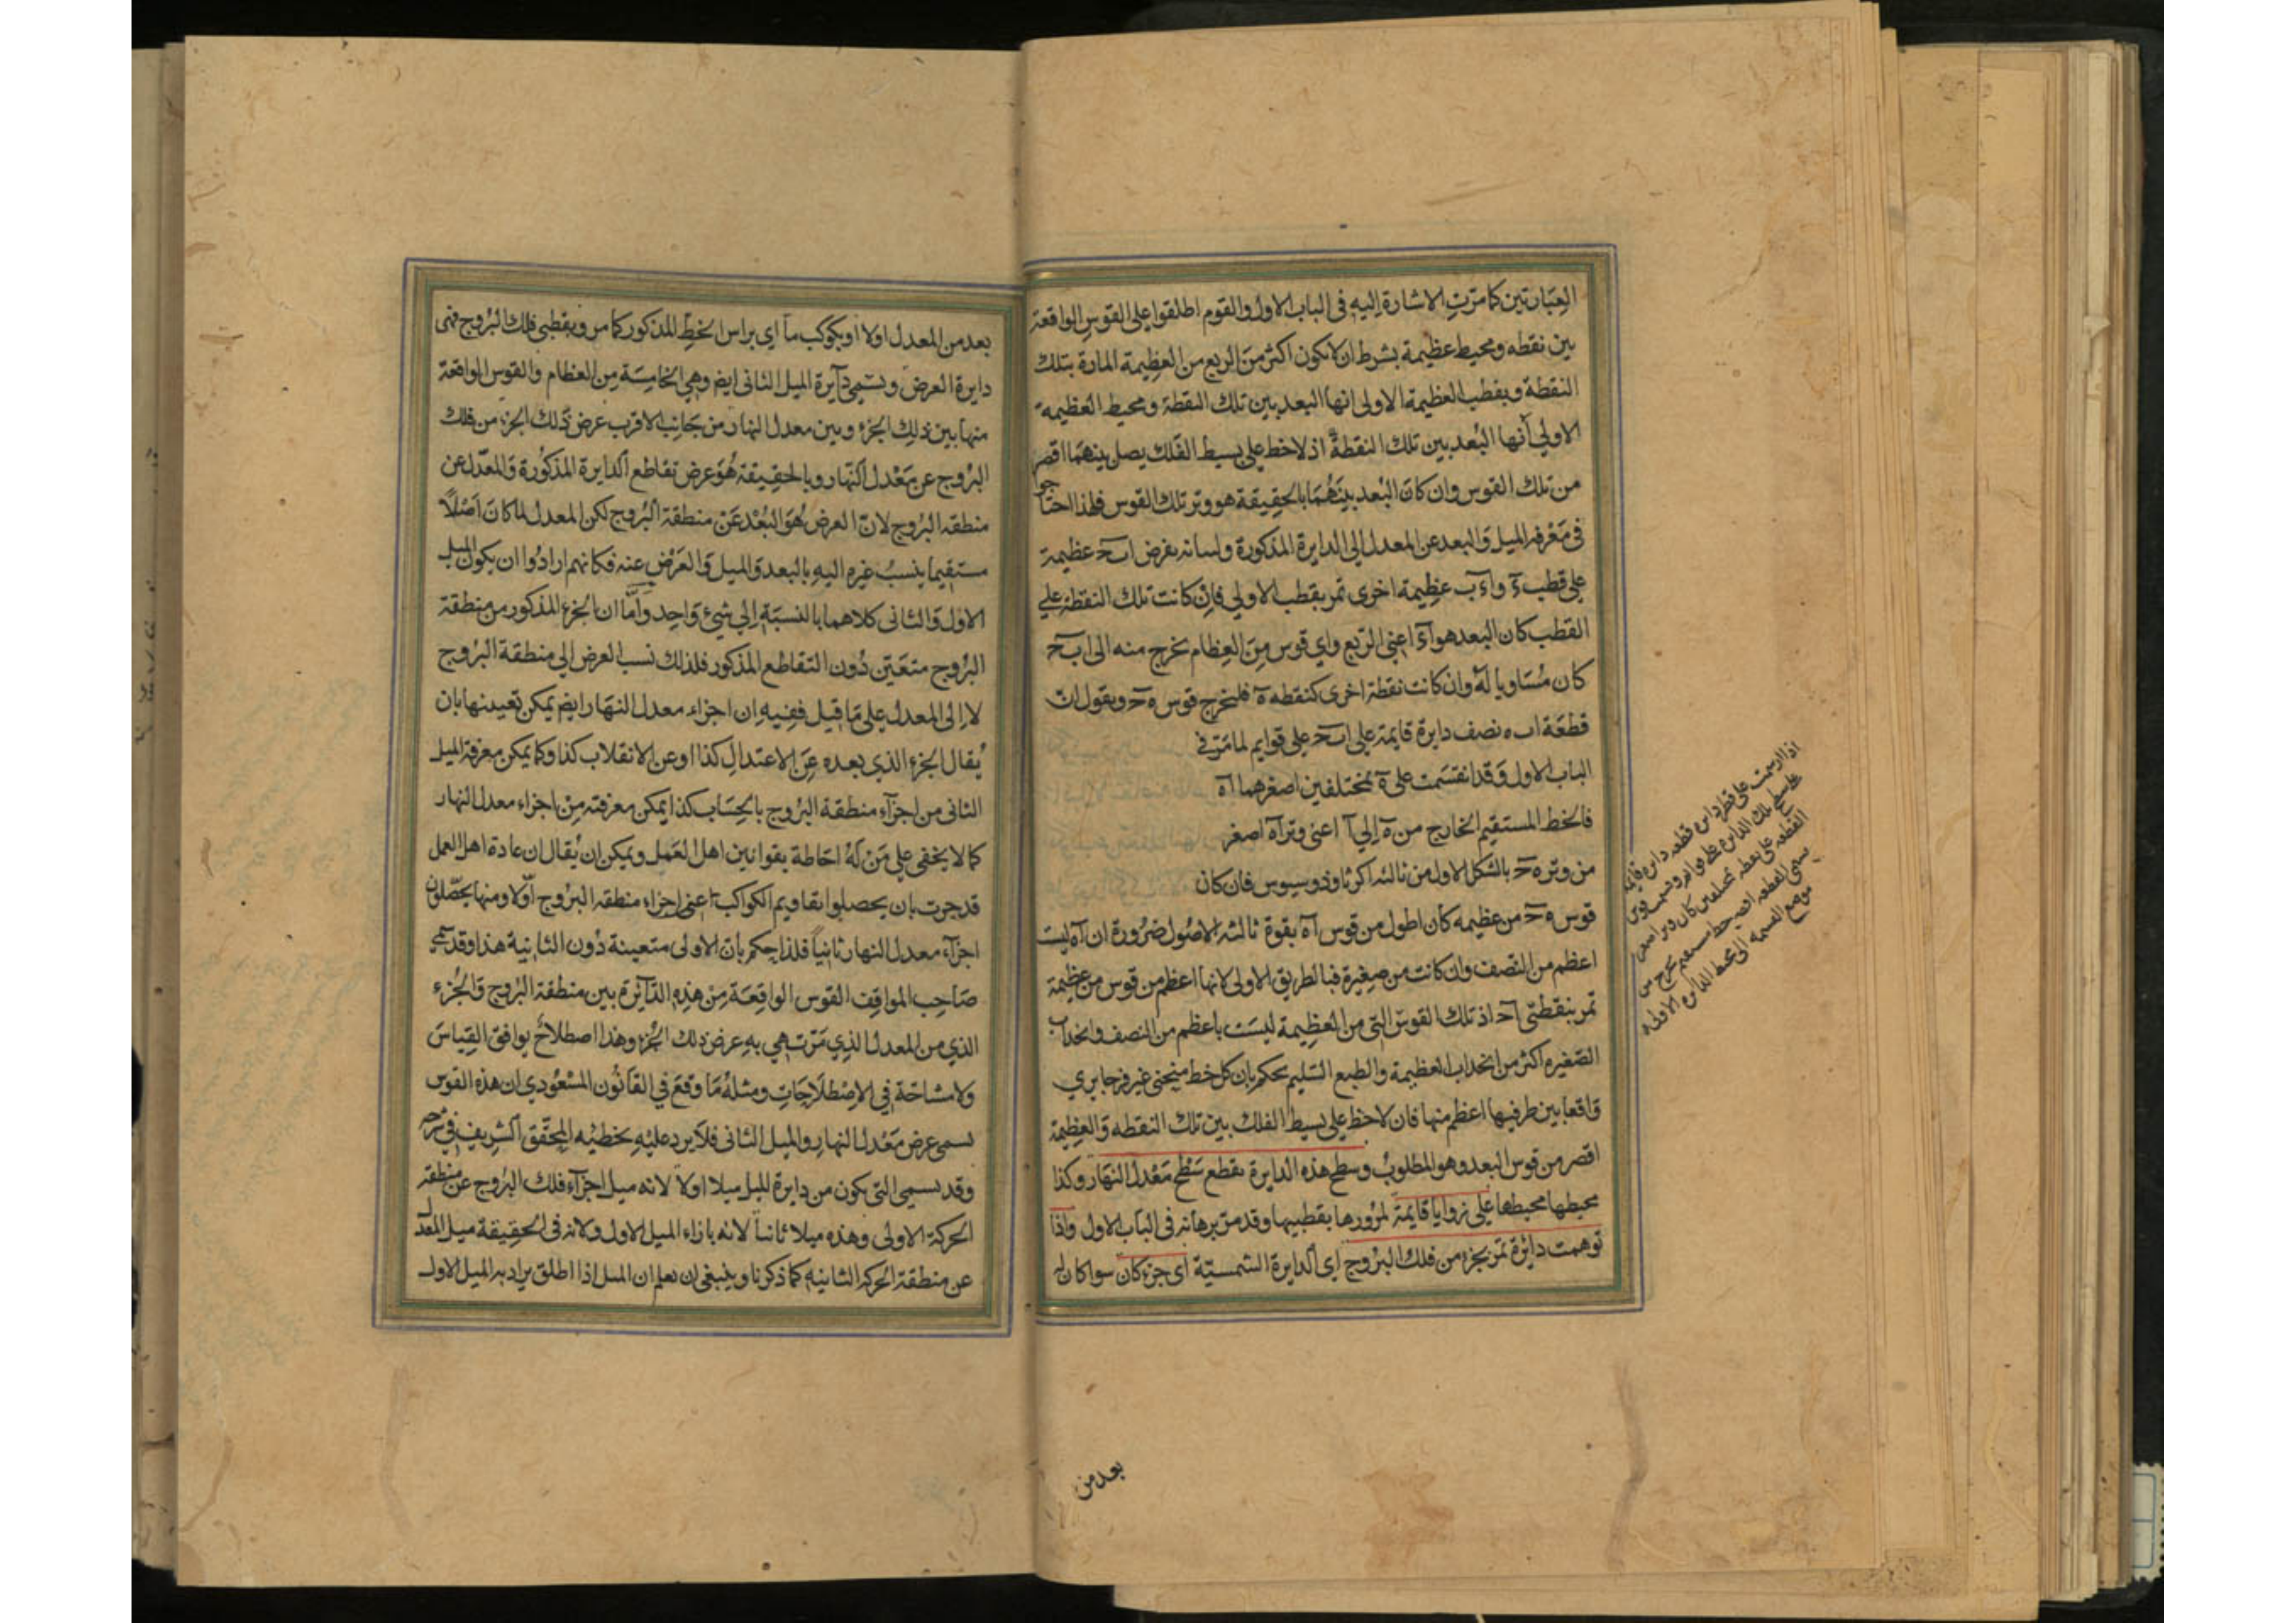 العبارتين كما مرت الاشارة اليه فى الباب الاول والقوم اطلقوا على القوس الواقعة
بين نقطه ومحيط عظيمة بشرط ان لا يكون اكثر من الربع من العظيمة المارة بتلك
النقطة وبقطب العظيمة الاولى انها البعد بين تلك النقطة ومحيط العظيمة
الاولي أنها البُعد بين تلك النقطة اذ لا خط على بسيط الفلك يصل بينهما اقصر
من تلك القوس وان كان البُعد بينهُما بالحقيقة هو وتر تلك القوس فلهذا احتاجوا
فى معرفه الميل والبعد عن المعدل الى الدايرة المذكورة ولبيانه نفرض ا ب ح عظيمة
على قطب ء و ا ء ب عظيمة اخرى تمر بقطب الاولي فان كانت تلك النقطة علي
القطب كان البعد هو ا ء اعنى الربع واي قوس من العظام يخرج منه الى ا ب ح
كان مُساويا له وان كانت نقطة اخرى كنقطه ه فلنخرج قوس ه ح ونقول ان
قطعة ا ب ه نصف دايرة قايمة على ا ب ح على قوايم لما مَرّ فى
الباب الاول وقد انقسمت على ه بمختلفين اصغرهما ا ه
فالخط المستقيم الخارج من ه الي ا اعنى وتر ا ه اصغر
من وتر ه ح بالشكل الاول من ثالثه اكر ثاوذوسيوس فان كان
قوس ه ح من عظيمه كان اطول من قوس ا ه بقوة ثالثه الاصُول ضرُورة ان ا ه ليست
اعظم من النصف وان كانت من صغيرة فبالطريق الاولى لانها اعظم من قوس من عظيمة
تمر بنقطتى ه ح اذ تلك القوس التى من العظيمة ليست باعظم من النصف وانحداب
الصّغيره اكثر من انحداب العظيمة والطبع السّليم يحكم بان كل خط منحنى غير فرجايري
واقعا بين طرفيها اعظم منها فان لا خط على بسيط الفلك بين تلك النقطه والعظيمة
اقصر من قوس البعد وهو المطلوبُ وسطح هذه الدايرة يقطع سَطح مَعْدل النهار وكذا
محيطها محيطها على زوايا قايمة لمرُورها بقطبيها وقد مَرّ برهانه فى الباب الاول واذا
توهمت دائرة تمر بجزء من فلك البُروج اى الدايرة الشمسيّة اى جزء كان سوا كان له
اذا ارسمت على قطر دايره قطعه دايره قايمه
على سطح تلك الدايره على قوايم وقسمت قوس
القطعه على نقطه بمختلفين كان وتر اصغر
قسمى القطعه اقصر خط مستقيم يخرج من
موضع القسمه الى محيط الدايره الاولى
بعد من
بعد من المعدل اولا او بكوكب ما اى براس الخط المذكور كما مر وبقطبى فلك البُروج فهى
دايرة العرض وتسمى دآيرة الميل الثانى ايضم وهي الخامِسَة من العظام والقوس الواقعة
منها بين ذلك الجزء وبين معدل النهار من جَانب الاقرب عرض ذلك الجزء من فلك
البرُوج عن مَعْدل النّهار وبالحقيقة هُو عرض تقاطع الدايرة المذكورة والمعدّل عن
منطقه البُروج لان العرض هُوَ البُعْد عَنْ منطقة البُروج لكن المعدل لما كان اصْلاً
مستقيما ينسبُ غيره اليهِ بالبعد والميل والعَرْض عنه فكانهم ارادُوا ان يكون الميل
الاول والثانى كلاهما بالنسبَة الي شئ واحد وامّا ان الجزء المذكور من منطقة
البرُوج متعَين دُون التقاطع المذكور فلذلك نسب العرض الي منطقة البرُوج
لا الى المعدل على مَا قيل ففيهِ ان اجزاء معدل النهار ايضم يمكن تعيينها بان
يُقال الجزء الذي بعده عن الاعتدال كذا او عن الانقلاب كذا وكما يمكن معرفة الميل
الثانى من اجزآء منطقة البرُوج بالحِسَاب كذا يمكن معرفته مِنْ اجزاء معدل النهار
كما لا يخفى على مَن لهُ احَاطة بقوانين اهل العَمل ويمكن ان يُقال ان عادة اهل العمل
قد جرت بان يحصلوا تقاويم الكواكب اعنى اجزاء منطقه البرُوج اوّلا ومنها يحَصّلون
اجزآء معدل النهار ثانياً فلذا حكم بان الاولى متعينة دُون الثانية هذا وقد سمّى
صَاحب المواقِف القوس الواقِعَة مِنْ هذِهِ الدّآئرة بين منطقة البرُوج والجُزء
الذي من المعدل الذِي مَرّت هي بهِ عرض ذلك الجزء وهذا اصطلاح يوافق القياسَ
ولا مشاحّة فِى الاِصْطلَاحَاتِ ومثلهُ مَا وقعَ في القانُون المسْعُودى ان هذه القوس
تسمى عرض مَعْدل النهار والميل الثانى فلا يرد عليْهِ تخطئه المحقق الشريف في شرحه
وقد يسمى التى يكون من دايرة الميل ميلا اولا لانه ميل اجزآء فلك البرُوج عن منطقه
الحركة الاولى وهذه ميلا ثانيا لانه بازاء الميل الاول ولانه فى الحقيقة ميل المعدل
عن منطقة الحركه الثانيه كما ذكرنا وينبغى ان يعلم ان الميل اذا اطلق يراد به الميل الاول